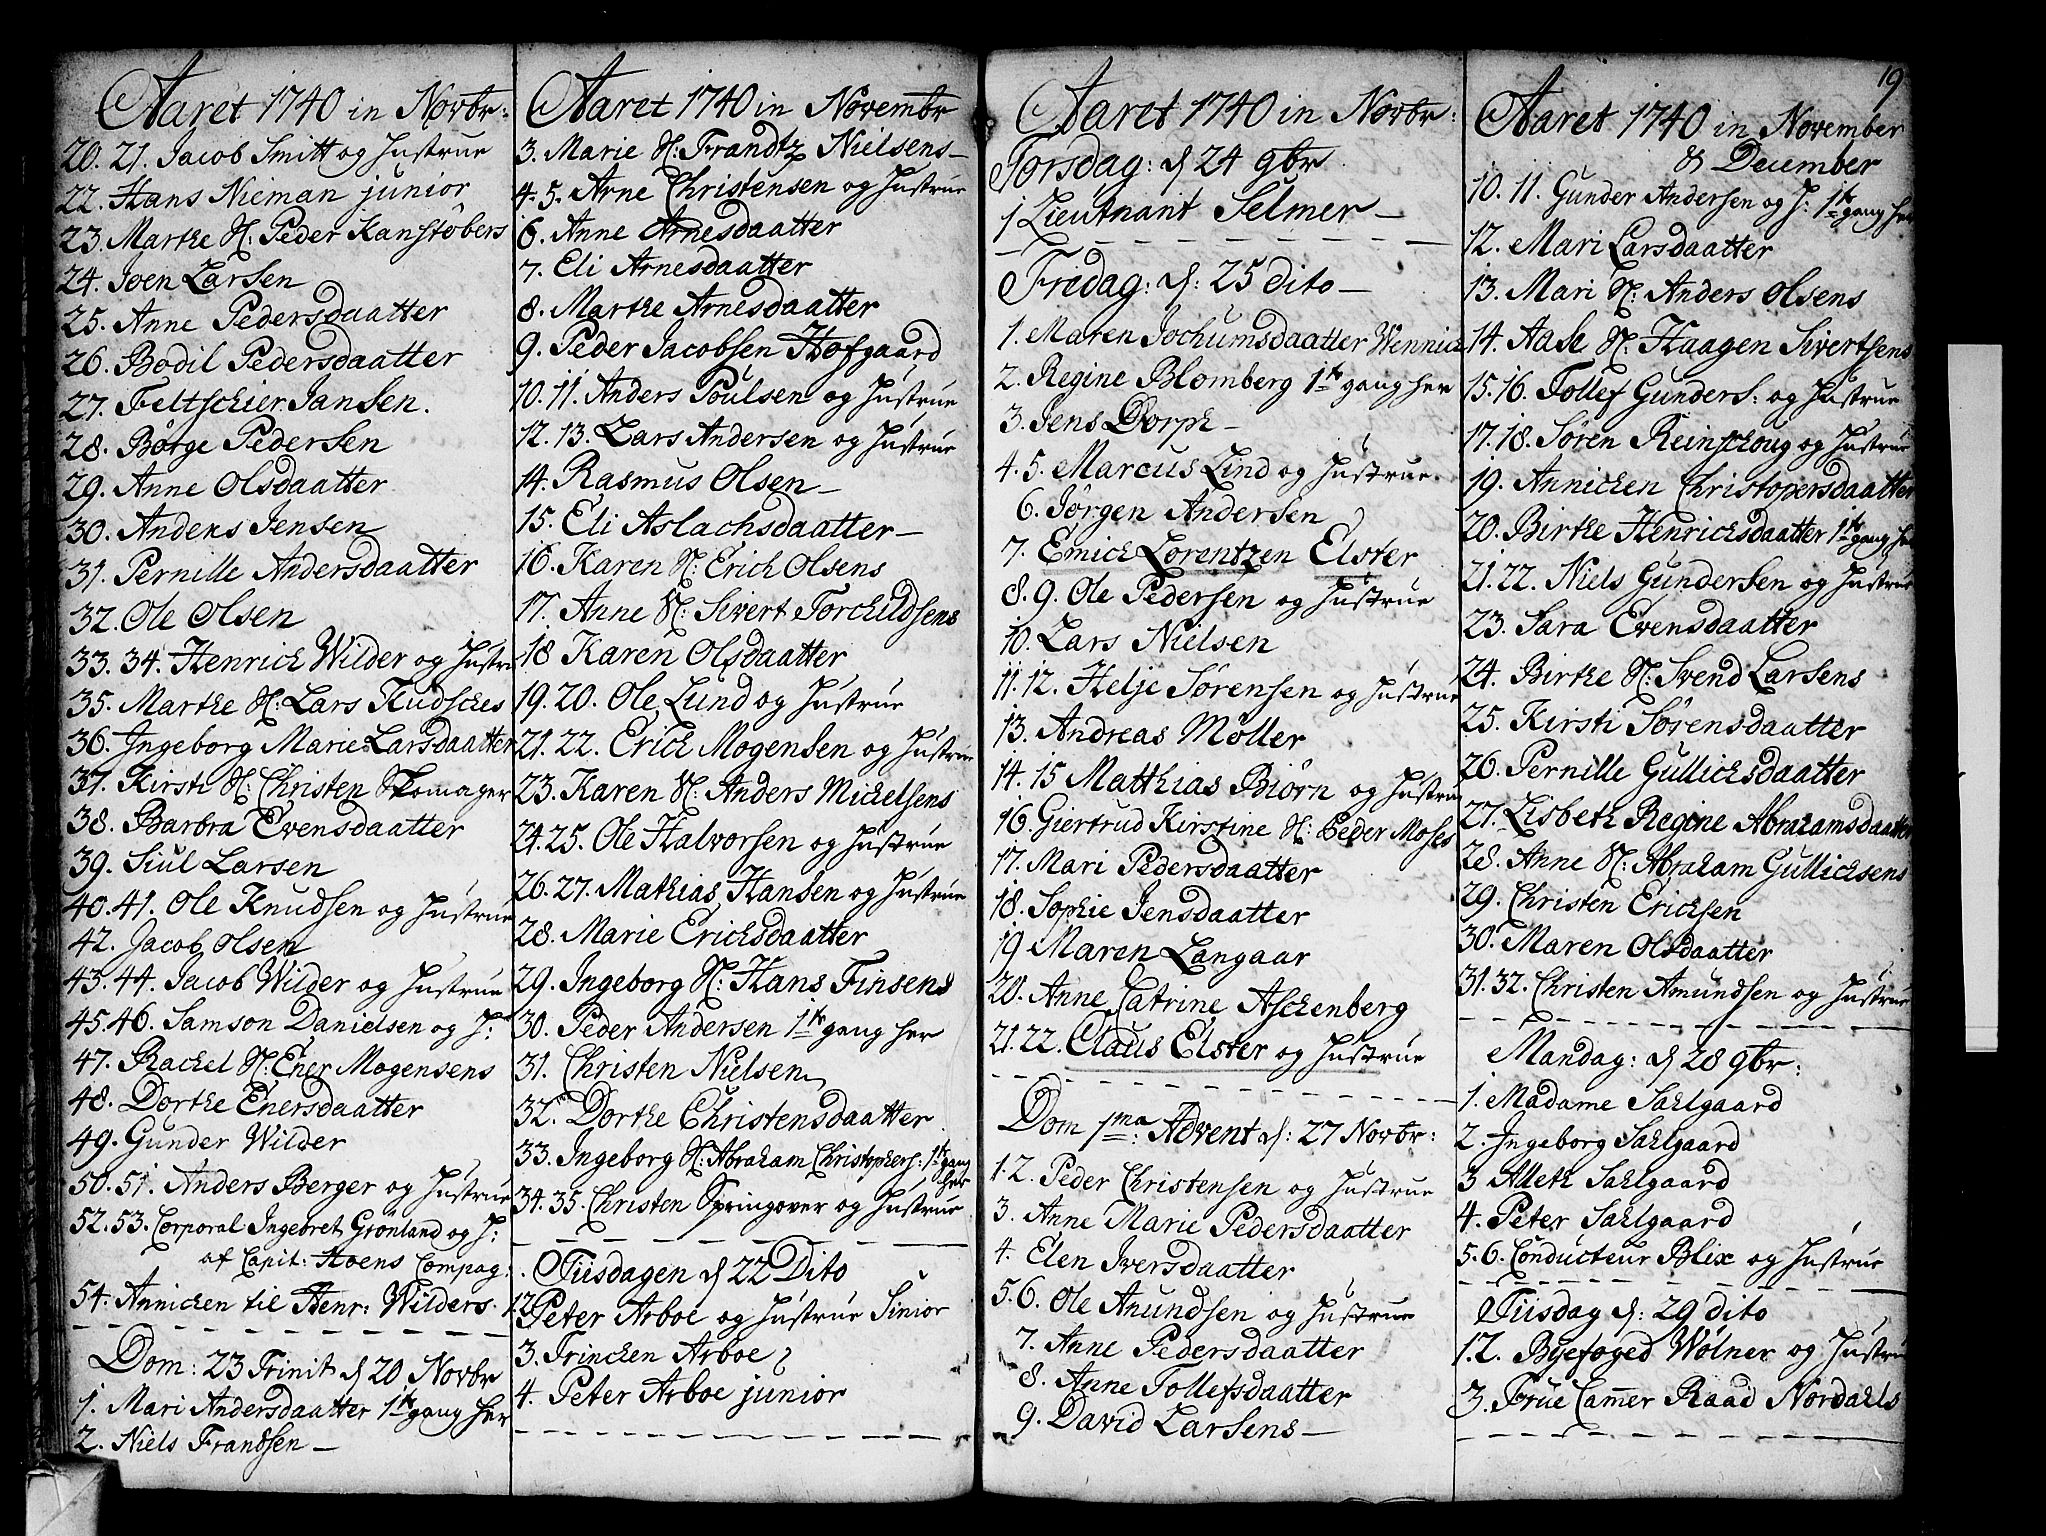 Aaret 1740 in Novbr:
20. 21. Jacob Smitt og Hustrue
22. Hans Nieman junior
23. Marthe S: Peder Kanstöbers
24. Joen Larsen
25. Anne Pedersdaatter
26. Bodil Pedersdaatter
27. Feltschier Jansen.
28. Börge Pedersen
29. Anne Olsdaatter
30. Anders Jensen
31. Pernille Andersdaatter
32. Ole Olsen
33. 34. Henrich Wilder og Hustru
35. Marthe H: Lars
36. Ingeborg Marie Larsdaatter
37. Kirsti H: Christen Skomager
38. Barbra Evensdaatter
39. Siul Larsen
40. 41. Ole Knudsen og Hustrue
42. Jacob Olsen
43. 44. Jacob Wilder og Hustrue
45. 46. Samson Danielsen og H:
47. Rachel H: Ener Mogensens
48. Dorthe Enersdaatter
49. Gunder Wilder
50. 51. Anders Berger og Hustrue
52. 53. Corporal Ingebret Grönland og H:
af Capit: Hoens Compag:
54. Annichen til Henr: Wilders.
Dom: 23 Trinit d 20 Novbr
1. Mari Andersdaatter 1ste gang her
2. Niels Frandsen –
Aaret 1740 in Novembr
3. Marie H: Frandtz Nielsens –
4. 5. Arne Christensen og Hustrue
6. Anne Arnesdaatter
7. Eli Arnesdaatter
8. Marthe Arnesdaatter
9. Peder Jacobsen Hofgaard
10. 11. Anders Poulsen og Hustrue
12. 13. Lars Andersen og Hustrue
14. Rasmus Olsen –
15. Eli Aslachsdaatter –
16. Karen H: Erich Olsens
17. Anne H: Sivert Torchildsens
18 Karen Olsdaatter
19. 20. Ole Lund og Hustrue
21. 22. Erich Mogensen og Hustrue
23. Karen H: Anders Michelsens
24. 25. Ole Halvorsen og Hustrue
26. 27. Mathias Hansen og Hustrue
28. Marie Erichsdaatter
29. Ingeborg H: Hans Finsens
30. Peder Andersen 1ste gang her
31. Christen Nielsen
32. Dorthe Christensdaatter
33. Ingeborg H: Abraham Christophers: 1ste gang
her
34. 35. Christen Springover og Hustrue
Tiisdagen d 22 Dito
1 2 Peter Arboe og Hustrue Sinior
3. Trinchen Arboe
4. Peter Arboe junior
Aaret 1740 in Novbr:
Torsdag: d 24 9br
1 Lieutnant Selmer –
Fredag: d: 25 dito –
1. Maren Jochumsdaatter Wennich
2. Regine Blomberg 1ste gang her
3. Jens Dorph –
4. 5. Marcus Lind og Hustrue.
6. Jörgen Andersen
7. Emich Lorentzen Elster
8. 9. Ole Pedersen og Hustrue
10. Lars Nielsen
11. 12. Helje Sörensen og Hustrue
13. Andreas Möller
14. 15 Matthias Biörn og Hustrue
16. Giertrud Kirstine H: Peder Moses
17. Mari Pedersdaatter
18. Sophie Jensdaatter
19 Maren Langaar
20. Anne Catrine Aschenberg
21. 22. Claus Elster og Hustrue
Dom 1ma: Advent d: 27 Novbr:
1. 2. Peder Christensen og Hustrue
3. Anne Marie Pedersdaatter
4. Elen Iversdaatter
5 6. Ole Anundsen og Hustrue
7. Anne Pedersdaatter
8. Anne Tollefsdaatter
9. David Larsens –
19
Aaret 1740 in November
& December
10. 11. Gunder Andersen og H: 1ste gang her
12. Mari Larsdaatter
13. Mari H: Anders Olsens
14. Aase H: Haagen Sivertsens
15. 16. Tollef Gunders: og Hustrue
17. 18. Sören Reinschoug og Hustrue
19. Annichen Christopersdaatter
20. Birthe Henrichsdaatter 1ste gang her
21. 22. Niels Gundersen og Hustrue
23. Sara Evensdaatter
24. Birthe H: Svend Larsens
25. Kirsti Sörensdaatter
26. Pernille Gullichsdaatter
27. Lisbeth Regine Abrahamsdaatter
28. Anne H: Abraham Gullichsens
29. Christen Erichsen
30. Maren Olsdaatter
31. 32. Christen Amundsen og Hustrue
Mandag: d 28 9br:
1. Madame Sahlgaard
2. Ingeborg Sahlgaard
3 Alleth Sahlgaard
4. Peter Sahlgaard
5. 6. Conducteur Blix og Hustrue
Tiisdag d: 29 dito
1. 2. Byefoged Wölner og Hustrue
3. Frue Camer Raad Nordahls